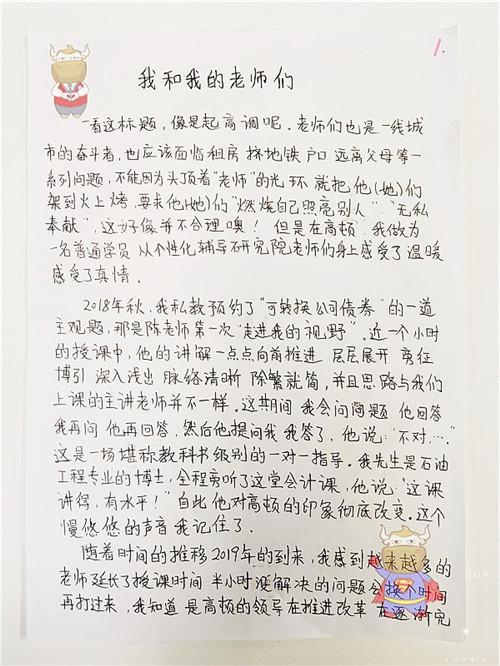 1.
我和我的老师们
一看这标题，像是起高调呢。老师们也是一线城
市的奋斗者，也应该面临租房 挤地铁 户口 远离父母等一
系列问题，不能因为头顶着"老师"的光环 就把他(她)们
架到火上烤，要求他(她)们"燃烧自己照亮别人" "无私
奉献"，这好像并不合理噢！但是在高顿，我做为
一名普通学员 从个性化辅导研究院老师们身上感受了温暖
感受了真情.
2018年秋，我私教预约了"可转换公司债券"的一道
主观题，那是陈老师第一次"走进我的视野"。近一个小时
的授课中，他的讲解一点点向前推进 层层展开 旁征
博引 深入浅出 脉络清晰 除繁就简，并且思路与我们
上课的主讲老师并不一样。这期间 我会问问题 他回答
我再问 他再回答，然后他提问我 我答了，他说："不对，…"
这是一场堪称教科书级别的一对一指导。我先生是石油
工程专业的博士，全程旁听了这堂会计课，他说："这课
讲得，有水平！"自此他对高顿的印象彻底改变。这个
慢悠悠的声音 我记住了.
随着时间的推移2019年的到来，我感到越来越多的
老师延长了授课时间 半小时没解决的问题会换个时间
再打过来，我知道 是高顿的领导在推进改革 在逐渐完